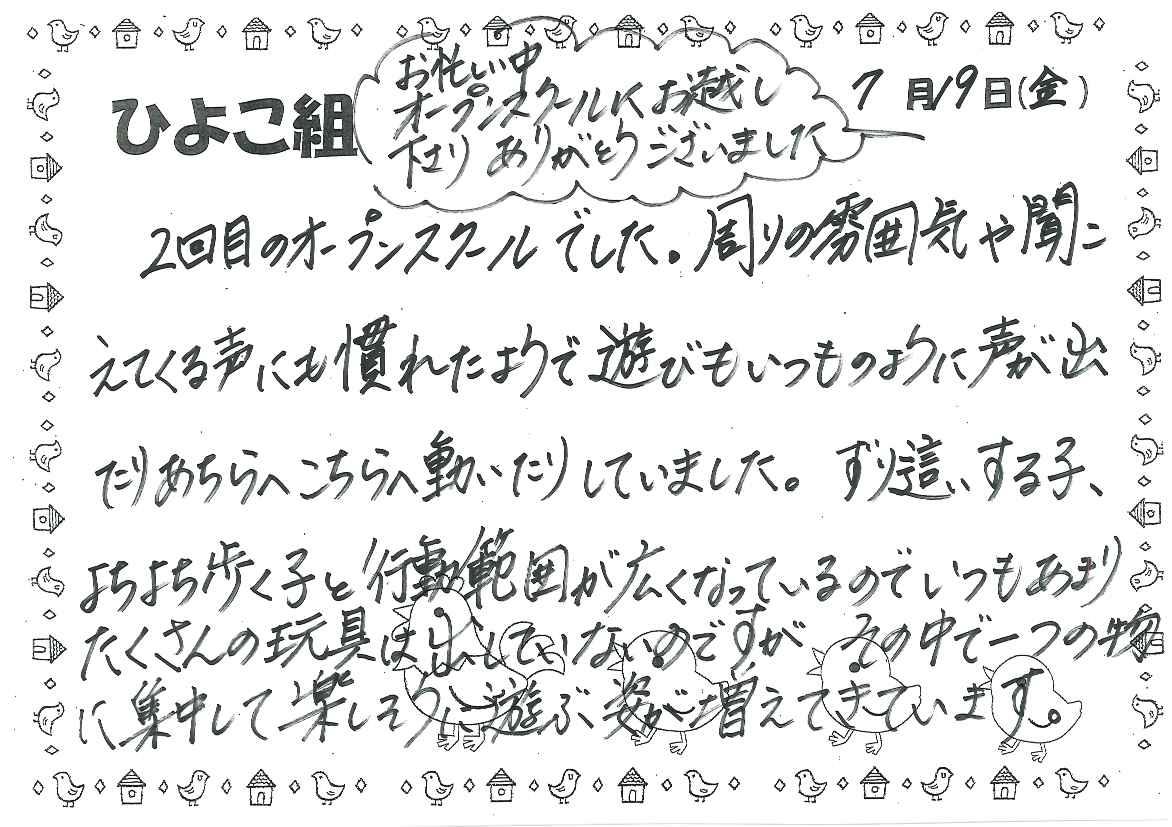 ひよこ組
お忙しい中
オープンスクールにお越し
下さり ありがとうございました
7月19日(金)
2回目のオープンスクールでした。周りの雰囲気や聞こ
えてくる声にも慣れたようで遊びもいつものように声が出
たりあちらへこちらへ動いたりしていました。ずり這いする子、
よちよち歩く子と行動範囲が広くなっているのでいつもあまり
たくさんの玩具は出していないのですが その中で一つの物
に集中して楽しそうに遊ぶ姿が増えてきています。